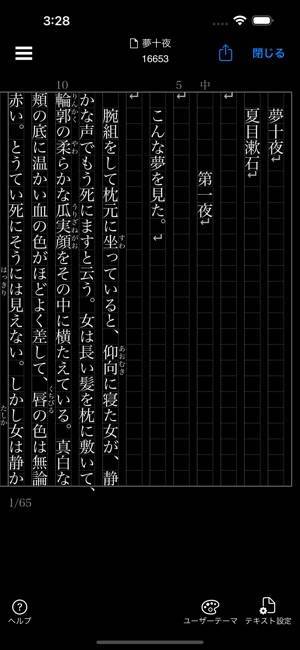 3:28
夢十夜
16653
閉じる
10
5
中
夢十夜↵
夏目漱石↵
↵
第一夜↵
↵
こんな夢を見た。↵
↵
腕組をして枕元に坐っていると、仰向に寝た女が、静
すわ
あおむき
かな声でもう死にますと云う。女は長い髪を枕に敷いて、
輪郭の柔らかな瓜実顔をその中に横たえている。真白な
りんかく
やわ
うりざねがお
頬の底に温かい血の色がほどよく差して、唇の色は無論
くちびる
赤い。とうてい死にそうには見えない。しかし女は静か
はっきり
たしか
1/65
ヘルプ
ユーザーテーマ
テキスト設定